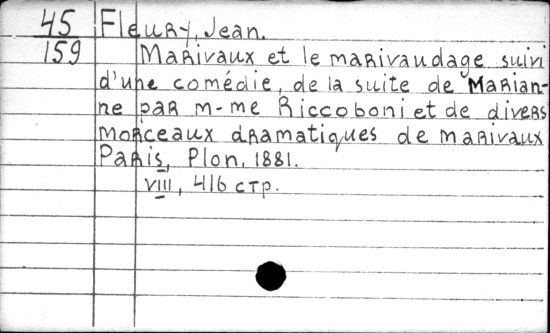 45 Fleury, Jean.
159 Marivaux et le marivaudage suivi
d'une comédie, de la suite de Marian-
ne par m-me Riccoboni et de divers
morceaux dramatiques de marivaux
Paris, Plon, 1881.
VIII, 416 стр.